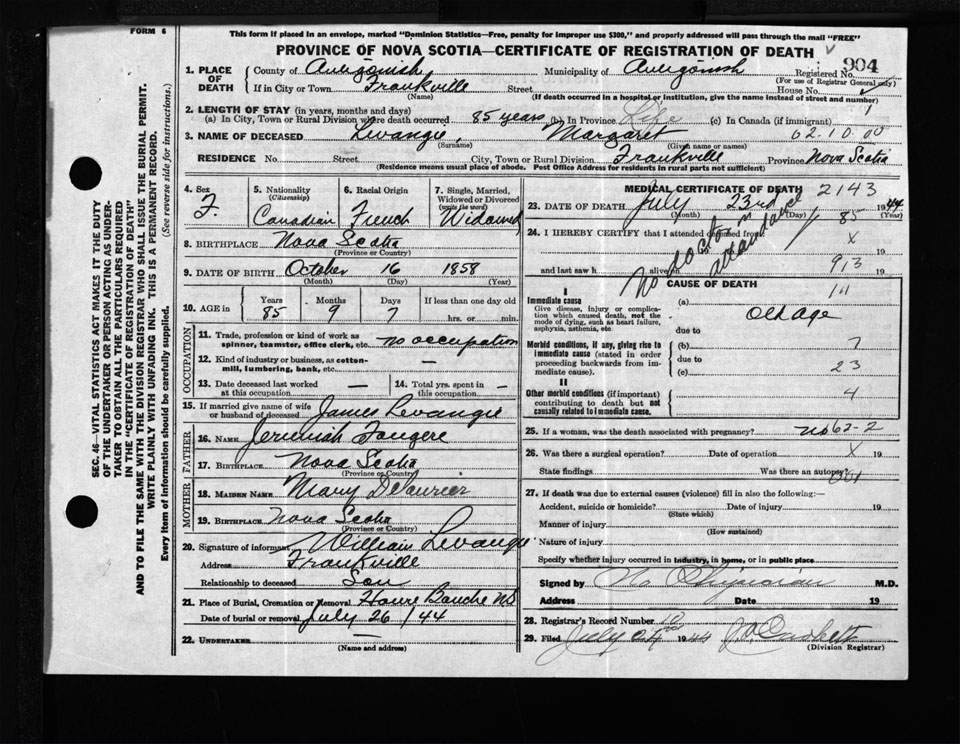 FORM 6
This form if placed in an envelope, marked "Dominion Statistics—Free, penalty for improper use $300," and properly addressed will pass through the mail "FREE"
PROVINCE OF NOVA SCOTIA—CERTIFICATE OF REGISTRATION OF DEATH
904
1. PLACE OF DEATH County of Antigonish Municipality of Antigonish Registered No.
(For use of Registrar General only)
If in City or Town Frankville Street House No.
(If death occurred in a hospital or institution, give the name instead of street and number)
2. LENGTH OF STAY (in years, months and days)
(a) In City, Town or Rural Division where death occurred 85 years (b) In Province Life (c) In Canada (if immigrant)
62-10.00
3. NAME OF DECEASED Levangie, Margaret
(Surname) (Given name or names)
RESIDENCE No. Street City, Town or Rural Division Frankville Province Nova Scotia
(Residence means usual place of abode. Post Office Address for residents in rural parts not sufficient)
4. Sex F.
5. Nationality (Citizenship) Canadian
6. Racial Origin French
7. Single, Married, Widowed or Divorced (write the word) Widowed
8. BIRTHPLACE Nova Scotia
(Province or Country)
9. DATE OF BIRTH October 16 1858
(Month) (Day) (Year)
10. AGE in Years Months Days If less than one day old
85 9 7 hrs. or min.
OCCUPATION
11. Trade, profession or kind of work as spinner, teamster, office clerk, etc. no occupation
12. Kind of industry or business, as cotton-mill, lumbering, bank, etc. —
13. Date deceased last worked at this occupation — 14. Total yrs. spent in this occupation —
15. If married give name of wife or husband of deceased James Levangie
FATHER
16. NAME Jeremiah Fougere
17. BIRTHPLACE Nova Scotia
(Province or Country)
MOTHER
18. MAIDEN NAME Mary
19. BIRTHPLACE Nova Scotia
(Province or Country)
20. Signature of informant William Levangie
Address Frankville
Relationship to deceased Son
21. Place of Burial, Cremation or Removal Havre Bouche NS
Date of burial or removal July 26/44
22. UNDERTAKER —
(Name and address)
MEDICAL CERTIFICATE OF DEATH 2143
23. DATE OF DEATH July 23rd 1944
(Month) (Day) (Year)
85
24. I HEREBY CERTIFY that I attended deceased from
X 19
and last saw h alive on 19
913
No doctor in attendance
CAUSE OF DEATH
I
Immediate cause (a) Old Age
Give disease, injury or complication which caused death, not the mode of dying, such as heart failure, asphyxia, asthenia, etc.
due to
Morbid conditions, if any, giving rise to immediate cause (stated in order proceeding backwards from immediate cause).
(b) 7
due to
(c) 23
II
Other morbid conditions (if important) contributing to death but not causally related to immediate cause.
4
25. If a woman, was the death associated with pregnancy? no 62-2
26. Was there a surgical operation? Date of operation X 19
State findings Was there an autopsy?
27. If death was due to external causes (violence) fill in also the following:—
Accident, suicide or homicide? Date of injury 19
(State which)
Manner of injury
(How sustained)
Nature of injury
Specify whether injury occurred in industry, in home, or in public place
Signed by No Physician M.D.
Address Date 19
28. Registrar's Record Number
29. Filed July 24th 1944
(Division Registrar)
SEC. 46—VITAL STATISTICS ACT MAKES IT THE DUTY
OF THE UNDERTAKER OR PERSON ACTING AS UNDER-
TAKER TO OBTAIN ALL THE PARTICULARS REQUIRED
IN THE "CERTIFICATE OF REGISTRATION OF DEATH"
AND TO FILE THE SAME WITH THE DIVISION REGISTRAR WHO SHALL ISSUE THE BURIAL PERMIT.
WRITE PLAINLY WITH UNFADING INK. THIS IS A PERMANENT RECORD.
Every item of information should be carefully supplied. (See reverse side for instructions.)